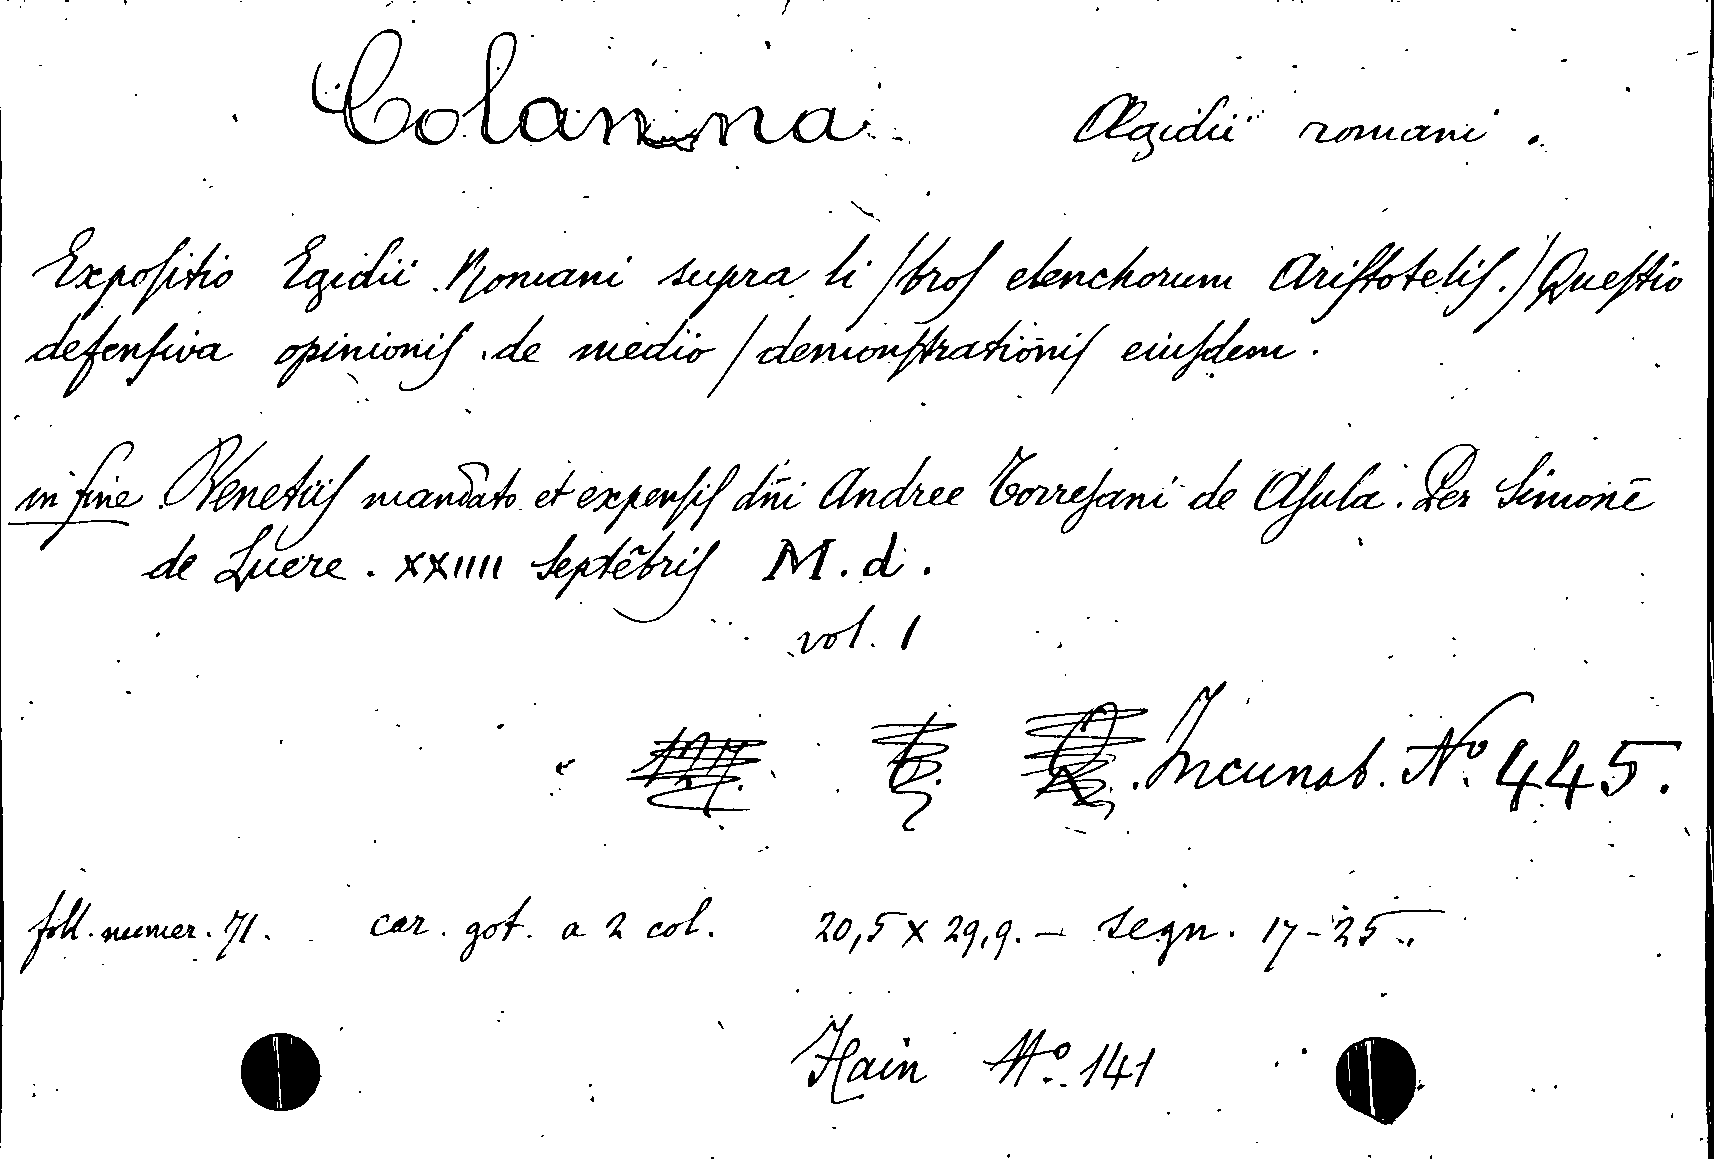 Colonna Ægidii romani.
Expoſitio Egidii Romani supra li/broſ elenchorum Ariſtoteliſ./Queſtio
defenſiva opinioniſ de medio/demonſtrationiſ eiuſdem.
in fine Venetiiſ mandato et expenſiſ dñi Andree Torreſani de Aſula. Per Simonē
de Luere. XXIIII Septēbriſ M.d.
vol. 1
Incunab. Nº 445.
foll. numer. 71. car. got. a 2 col. 20,5 x 29,9. – segn. 17-25
Hain Nº 141